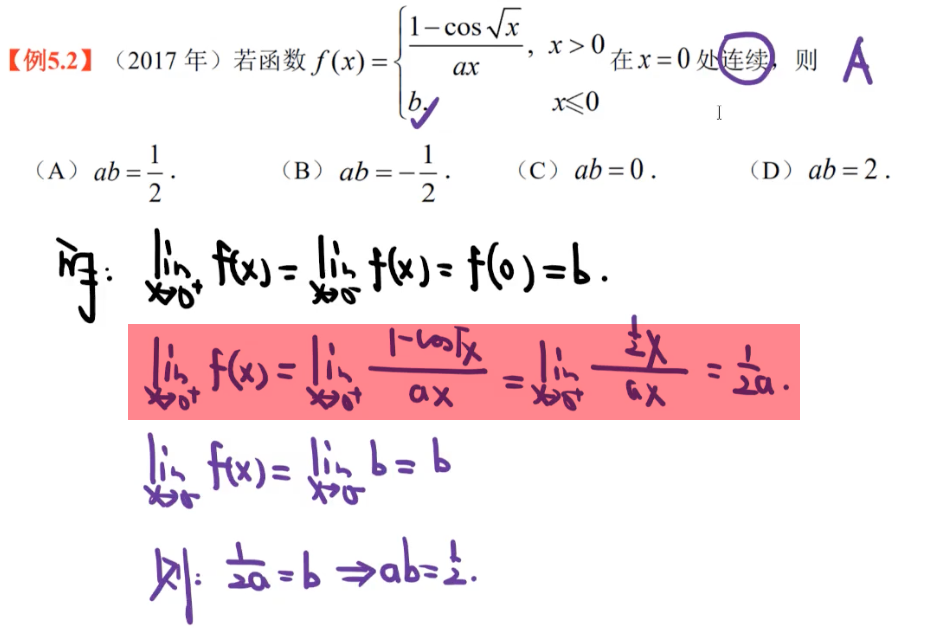 【例5.2】（2017年）若函数 f(x) = { (1-cos√x)/(ax), x>0; b, x≤0 在 x=0 处连续，则 A
（A）ab = 1/2． （B）ab = -1/2． （C）ab = 0． （D）ab = 2．
lim_{x→0⁺} f(x) = lim_{x→0⁻} f(x) = f(0) = b.
lim_{x→0⁺} f(x) = lim_{x→0⁺} (1-cos√x)/(ax) = lim_{x→0⁺} (½x)/(ax) = 1/(2a).
lim_{x→0⁻} f(x) = lim_{x→0⁻} b = b
则: 1/(2a) = b ⇒ ab = 1/2.